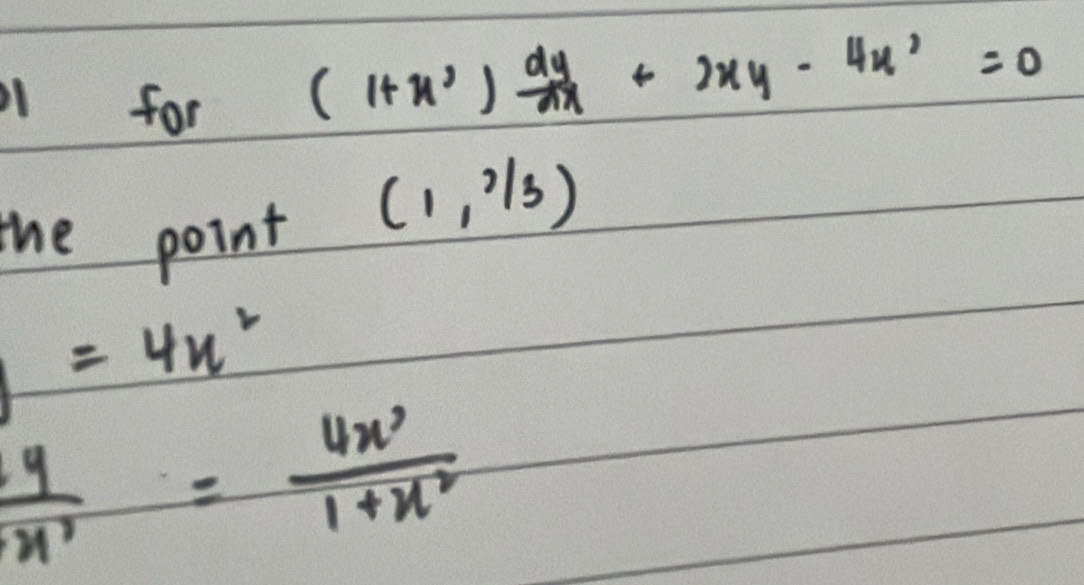 for (1+x²) dy/dx + 2xy - 4x² = 0
the point (1, 2/3)
= 4x²
y/+x² = 4x²/1+x²